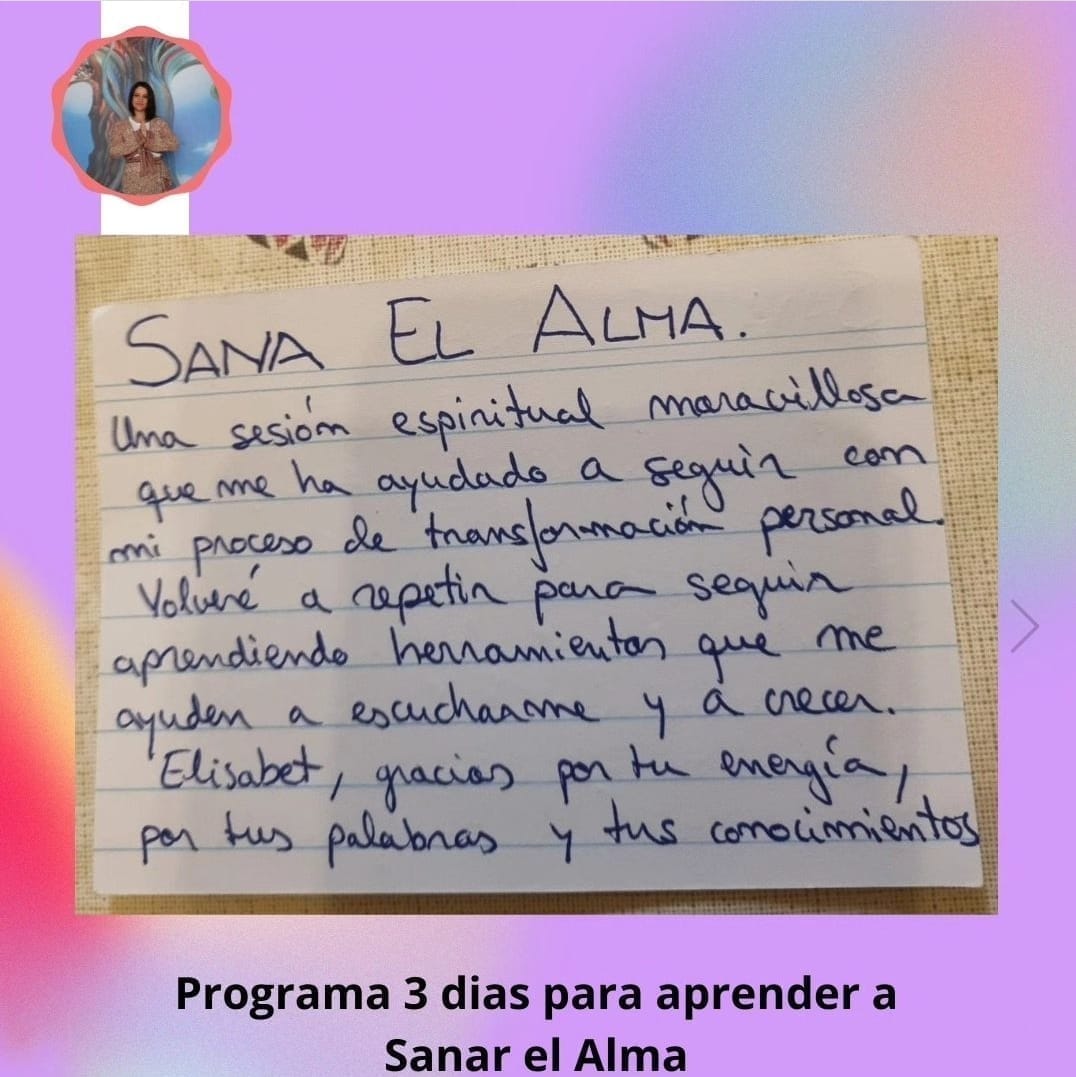 SANA EL ALMA.
Una sesión espiritual maravillosa
que me ha ayudado a seguir con
mi proceso de transformación personal.
Volveré a repetir para seguir
aprendiendo herramientas que me
ayuden a escucharme y a crecer.
Elisabet, gracias por tu energía,
por tus palabras y tus conocimientos
Programa 3 dias para aprender a
Sanar el Alma